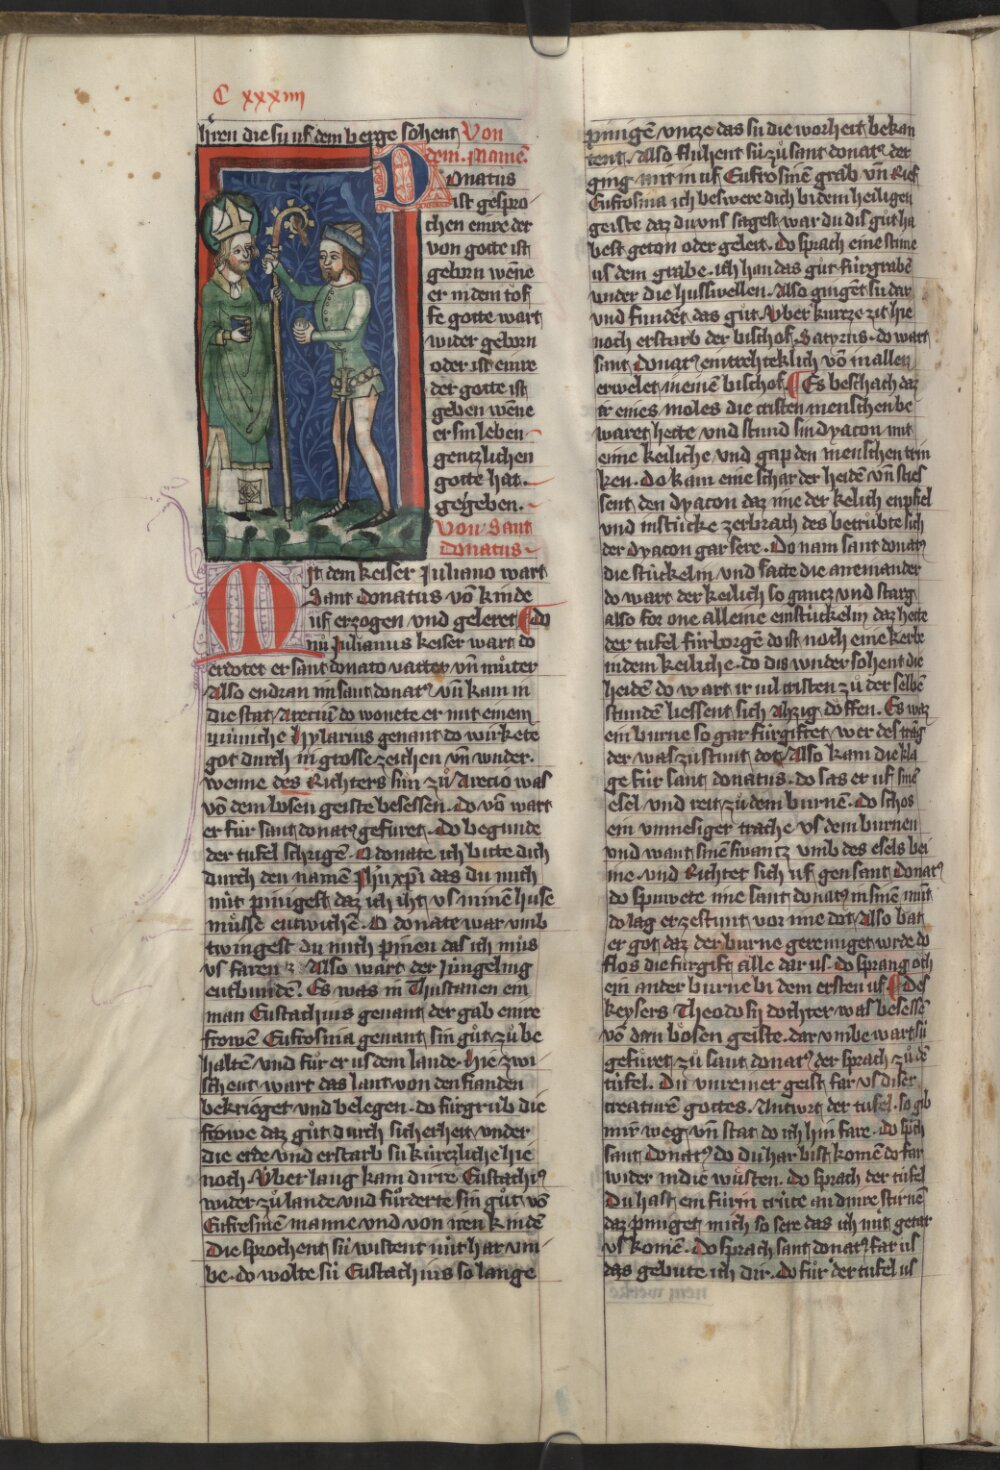 C xxxiiii
hꝛen die sú uf dem berge sohent Von
dem. Namē.
Donatus
ist gespro
chen einre der
von gotte ist
geborn wēne
er in dem tof
fe gotte wart
wider geborn
oder ist einre
der gotte ist
geben wēne
er sin leben
gentzlichen
gotte hat.
gegeben.
Von Sant
Donatus
Mit dem keiser Juliano wart
Sant Donatus vō kinde
uf erzogen und geleret ¶ do
nů Julianus keiser wart do
ertotet er sant donato vatter vn̄ můter
Also endran im sant donatꝰ vn̄ kam in
die stat Areciū do wonete er mit einem
můnche hylarius genant do wúrkete
got durch in grosse zeichen vn̄ wnder.
wenne des Richters sun zů Arecio was
vō dem bosen geiste besessen. do vō wart
er fúr sant donatꝰ gefúret. do begunde
der tufel schrigē. O donate ich bitte dich
durch den namē ihū xp̄i das du mich
nút pinigest daz ich iht us minē huse
můsse entwichē. O donate war umb
twingest du mich pinen das ich můs
us faren. Also wart der Júngeling
enbundē. Es was in Thustanen ein
man Eustachius genant der gab einre
frowē Eufrosina genant sin gůt zů be
haltē und fůr er us dem lande. Hie zwi
schent wart das lant von den fianden
bekrieget und belegen. do fúrgrůb die
frowe daz gůt durch sicherheit under
die erde und erstarb sú kúrzliche hie
noch. Vber lang kam dirre Eustachiꝰ
wider zů lande und fůrderte sin gůt vō
Eufrosinē manne und von iren kindē
Die sprochent sú wistent nút har um
be. do wolte sú Eustachius so lange
pinigē untze das sú die worheit bekan
tent. Also fluhent sú zů sant donatꝰ der
ging mit in uf Eufrosinē grab vn̄ Rief
Eufrosina ich beswere dich bi dem heiligen
geiste daz du uns sagest war du dis gůt ha
best geton oder geleit. do sprach eine stīme
us dem grabe. ich han das gůt fúrgrabē
under die husswellen. Also gingēt sú dar
und fundēt das gůt. Vber kurtze zit hie
noch erstarb der bischof Satyrus. do wart
sant donatꝰ eintrehteklich vō in allen
erwelet zů einē bischof. ¶ Es beschach daz
er eines moles die cristen menschen be
waret hette und stund sin dyacon mit
eime keliche und gap den menschen trin
ken. Do kam eine schar der heidē vn̄ sties
sent den dyacon daz ime der kelich enpfiel
und in stúcke zerbrach des betrůbte sich
der dyacon gar sere. Do nam sant donatꝰ
die stúckelin und satte die an einander
do wart der kelich so gantz und starg
also for one alleine ein stúckelin daz hette
der tufel fúrborgē do ist noch eine kerbe
in dem keliche. do dis wnder sohent die
heidē do wart ir vil cristen zů der selbē
stundē liessent sich ahzig doffen. Es waz
ein burne so gar fúrgiftet wer des trāg
der was zů stunt dot. Also kam die kla
ge fúr sant donatus. do sas er uf sinē
esel und reit zů dem burnē. do schos
ein unmesiger trache us dem burnen
und want sinē swantz umb des esels bei
ne. und Richtet sich uf gen sant donatꝰ
do spuwete ime sant donatꝰ in sinē mūt
do lag er ze stunt vor ime dot. Also bat
er got daz der burne gereiniget wrde do
flos die fúrgift alle dar us. do sprang och
ein ander burne bi dem ersten uf. ¶ Des
keysers Theodosij dochter was besessē
vō dem bősen geiste. dar umbe wart sú
gefúret zů sant donatꝰ der sprach zů dē
túfel. Du unreiner geist far us diser
creaturē gottes. Antwrt der tufel. so gib
mir weg vn̄ stat do ich hin fare. do sp̄ch
sant donatꝰ do du har bist komē do far
wider in die wůsten. Do sprach der túfel
Du hast ein fúrin crúce an dinre stirnē
daz piniget mich so sere das ich nút getar
us komē. Do sprach sant donatꝰ far us
das gebute ich dir. do fůr der tufel us